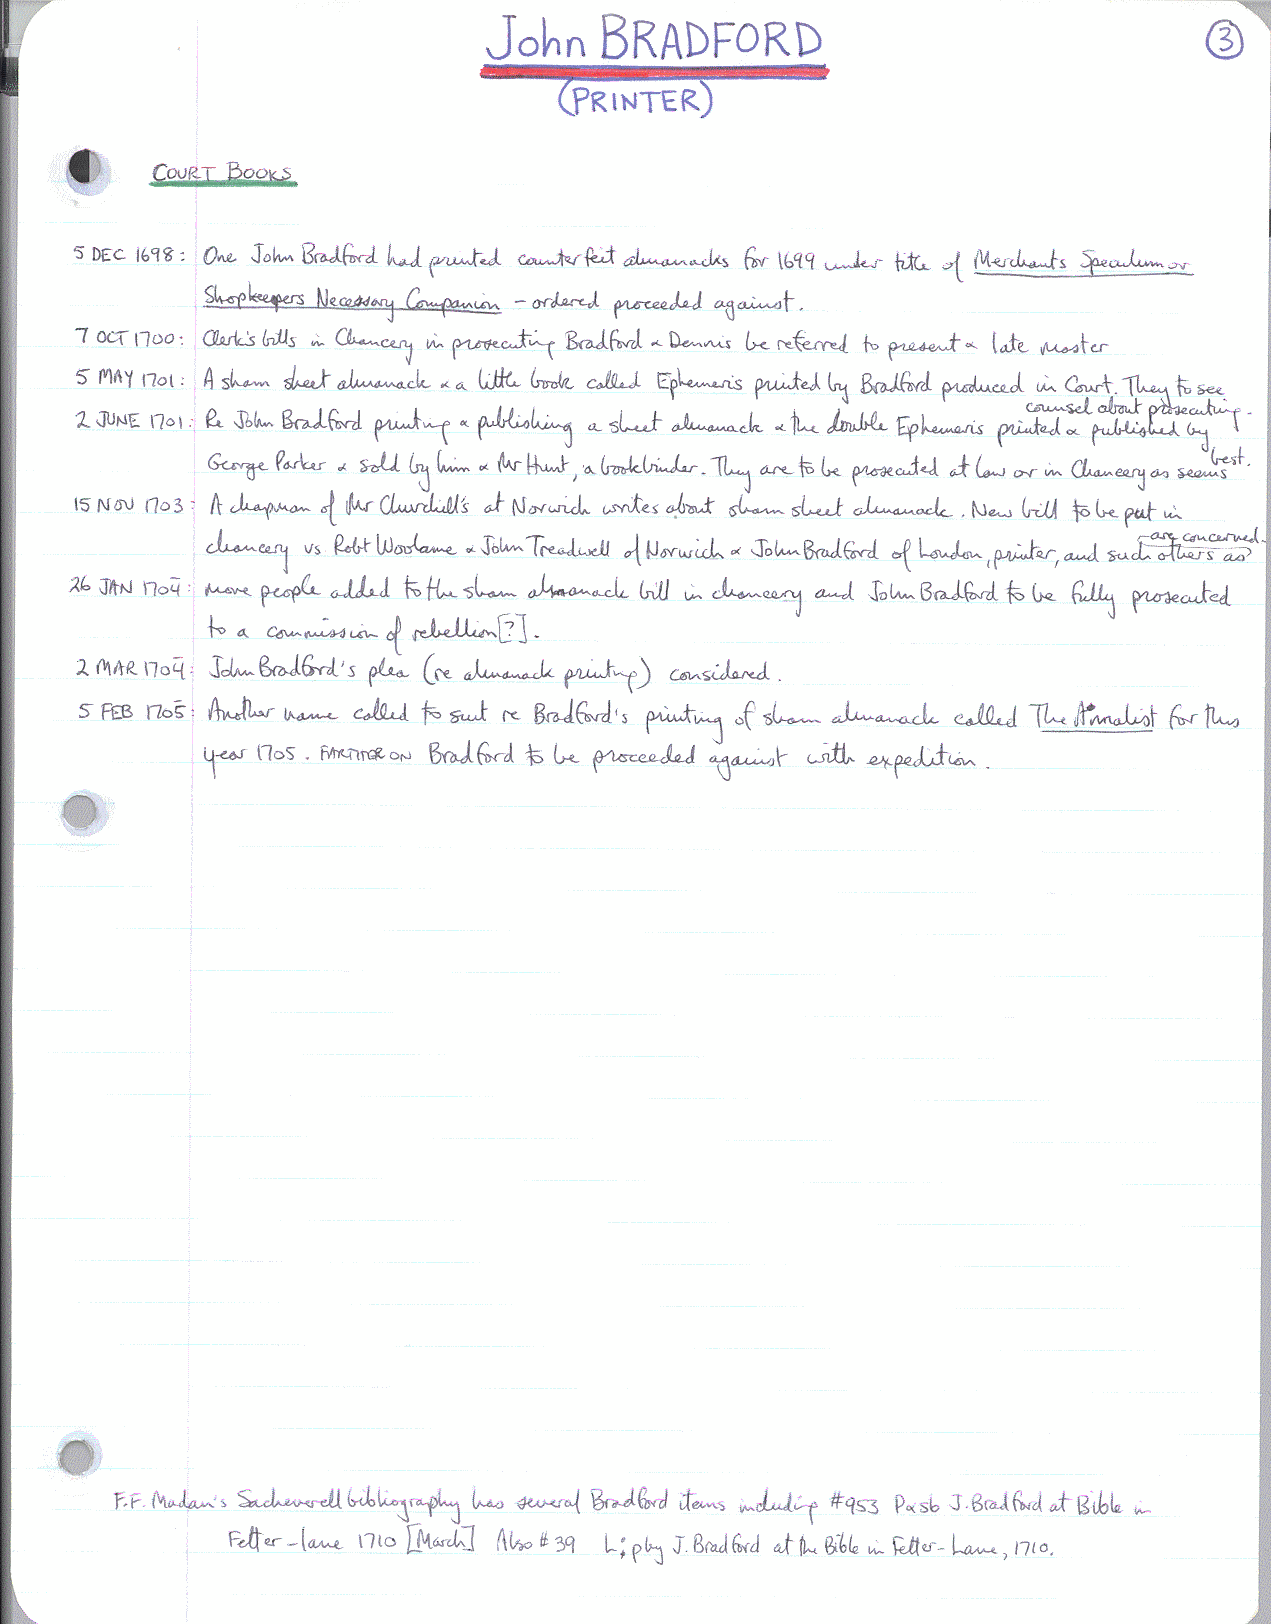 John BRADFORD
3
(PRINTER)
COURT BOOKS
5 DEC 1698: One John Bradford had printed counterfeit almanacks for 1699 under title of Merchants Speculum or
Shopkeepers Necessary Companion - ordered proceeded against.
7 OCT 1700: Clerk's bills in Chancery in prosecuting Bradford & Dennis be referred to present & late master
5 MAY 1701: A sham sheet almanack & a little book called Ephemeris printed by Bradford produced in Court. They to see
counsel about prosecuting.
2 JUNE 1701: Re John Bradford printing & publishing a sheet almanack & the double Ephemeris printed & published by
George Parker & sold by him & Mr Hunt, a bookbinder. They are to be prosecuted at law or in Chancery as seems
best.
15 NOV 1703: A chapman of Mr Churchill's at Norwich writes about sham sheet almanack. New bill to be put in
chancery vs Robt Woolame & John Treadwell of Norwich & John Bradford of London, printer, and such others as
are concerned.
26 JAN 1704: more people added to the sham almanack bill in chancery and John Bradford to be fully prosecuted
to a commission of rebellion[?].
2 MAR 1704: John Bradford's plea (re almanack printing) considered.
5 FEB 1705: Another name called to suit re Bradford's printing of sham almanack called The Annalist for this
year 1705. FARTHER ON Bradford to be proceeded against with expedition.
F.F. Madan's Sacheverell bibliography has several Bradford items including #953 P&sb J. Bradford at Bible in
Fetter-lane 1710 [March] Also #39 L; pby J. Bradford at the Bible in Fetter-Lane, 1710.